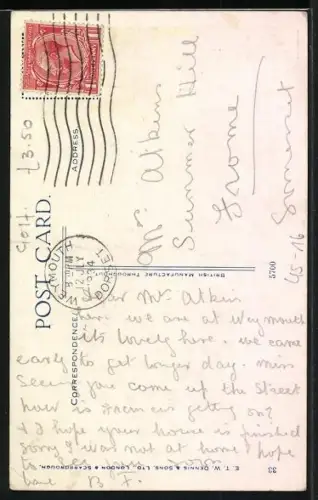 POST CARD.
CORRESPONDENCE
ADDRESS
BRITISH MANUFACTURE THROUGHOUT.
E. T. W. DENNIS & SONS, LTD., LONDON & SCARBOROUGH.
33
5700
WEYMOUTH
DORSET
12 JLY
£3.50
45-16
Mr Atkins
Summer Hill
Frome
Somerset
Dear Mr Atkins
here we are at Weymouth
its lovely here. we came
early to get longer day miss
seeing you come up the street
how is getting on?
& I hope your house is finished
sorry I was not at home hope
to see you soon
love B X.